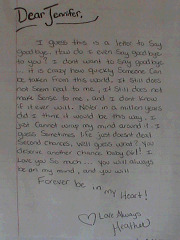 Dear Jennifer,
I guess this is a letter to Say
goodbye. How do I even Say goodbye
to you? I dont want to Say goodbye.
.. it is crazy how quickly Someone Can
be taken from this world. It Still does
not Seem real to me, it Still does not
make Sense to me, and I dont know
if it ever will. Never in a million years
did I think it would be this way. I
Just Cannot wrap my mind around it. I
guess Sometimes life just doesnt deal
Second chances, well guess what? You
deserve another chance baby girl! I
love you So much... you will always
be on my mind, and you will
Forever be in my Heart!
Love Always
Heather